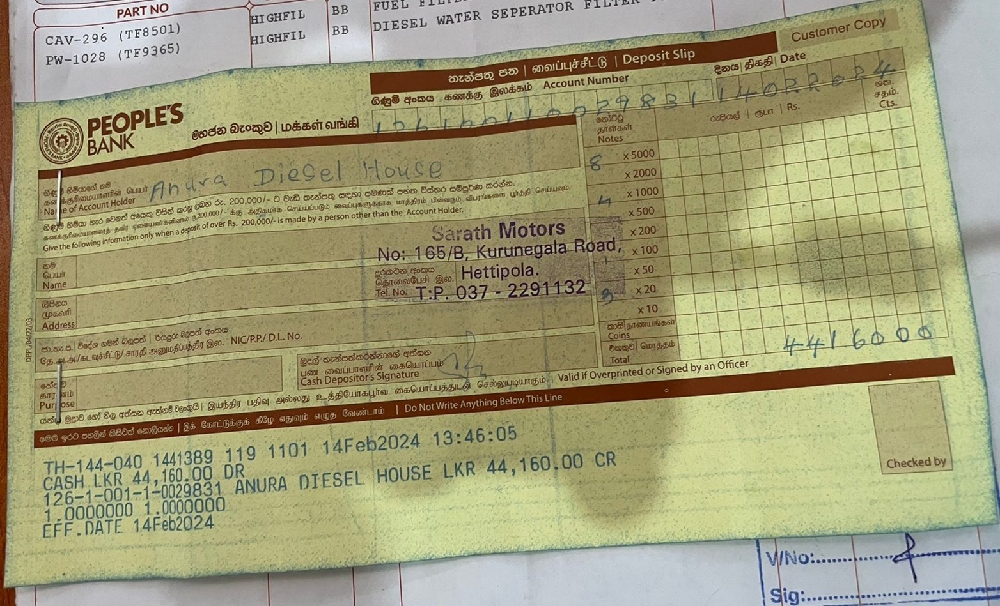 PART NO
CAV-296 (TF8501) HIGHFIL BB FUEL
PW-1028 (TF9365) HIGHFIL BB DIESEL WATER SEPERATOR FILTER
Customer Copy
තැන්පතු පත | வைப்புச்சீட்டு | Deposit Slip
PEOPLE'S
BANK
මහජන බැංකුව | மக்கள் வங்கி
ගිණුම් අංකය கணக்கு இலக்கம் Account Number
දිනය | திகதி | Date
14022024
Rs.
Cts.
Name of Account Holder Anura Diesel House
Notes
8 x 5000
x 2000
4 x 1000
x 500
x 200
1 x 100
x 50
3 x 20
x 10
Coins
Total
4416000
Give the following information only when a deposit of over Rs. 200,000/- is made by a person other than the Account Holder.
Sarath Motors
No: 165/B, Kurunegala Road,
Hettipola.
T:P. 037 - 2291132
නම
பெயர்
Name
Tel. No.
ලිපිනය
முகவரி
Address
NIC/P.P./ D.L. No.
Cash Depositor's Signature
Purpose
Valid if Overprinted or Signed by an Officer
Do Not Write Anything Below This Line
TH-144-040 1441389 119 1101 14Feb2024 13:46:05
CASH LKR 44,160.00 DR
126-1-001-1-0029831 ANURA DIESEL HOUSE LKR 44,160.00 CR
1.0000000 1.0000000
EFF.DATE 14Feb2024
Checked by
V/No:
Sig: